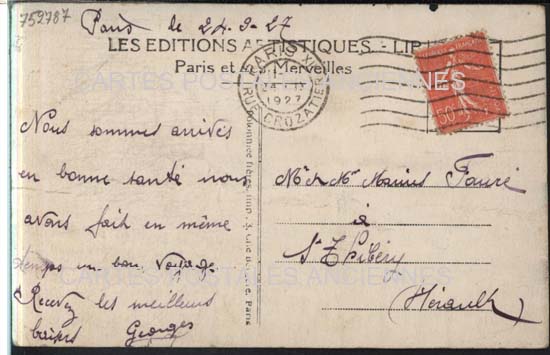 752787
Paris le 24-9-27
LES EDITIONS ARTISTIQUES - 
Paris et ses Merveilles
PARIS XII
24 IX
1927
RUE CROZATIER
50c
CARTES POSTALES ANCIENNES
Nous sommes arrivés
en bonne santé nous
avons fait en même
temps un bon voyage
Recevez les meilleurs
baisers Georges
Mr & Me Marius Fauré
à
St Thibéry
(Hérault)
frères, imp.
Paris
CARTES POSTALES ANCIENNES